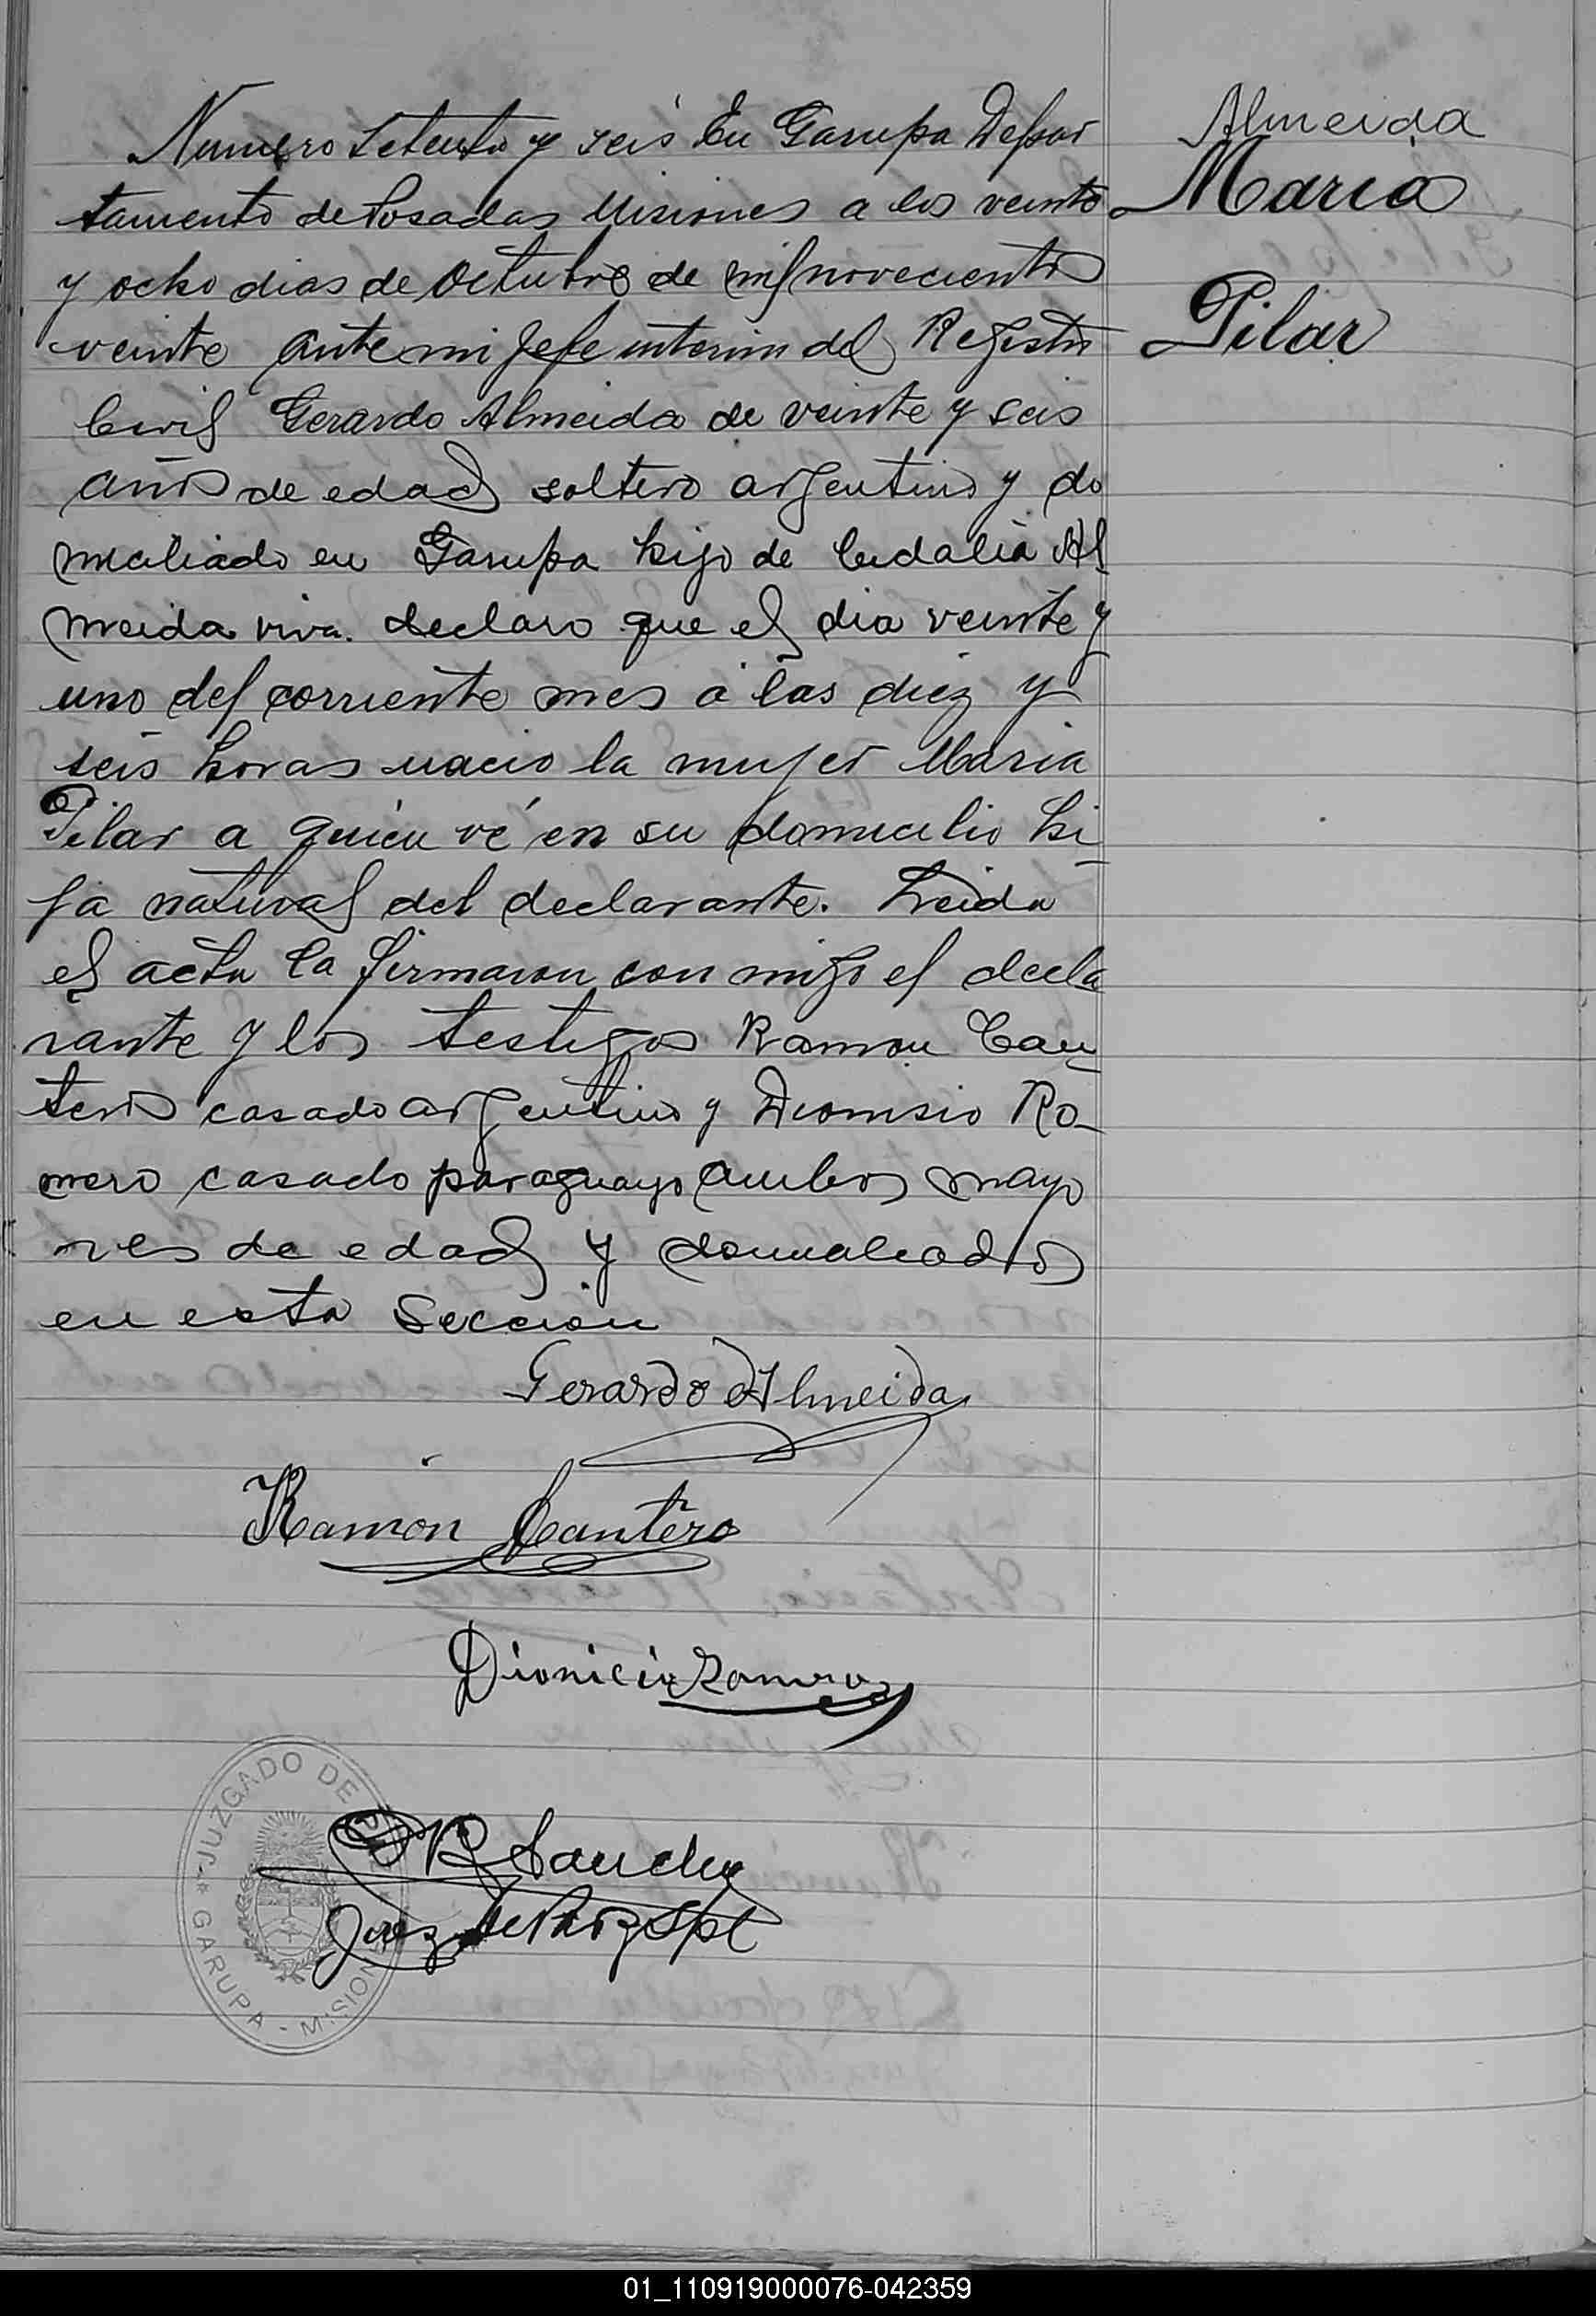 Numero Setenta y seis En Garupa Depar
tamento de Posadas Misiones a los veinte
y ocho dias de Octubre de mil novecientos
veinte ante mi Jefe interino del Registro
Civil Gerardo Almeida de veinte y seis
años de edad soltero argentino y do
miciliado en Garupa hijo de Cidalia Al
meida viva. declaro que el dia veinte y
uno del corriente mes a las diez y
seis horas nacio la mujer Maria
Pilar a quien vé en su domicilio hi
ja natural del declarante. Leida
el acta la firmaron con migo el decla
rante y los testigos Ramon Can
tero casado argentino y Dionisio Ro-
mero casado paraguayo ambos mayo
res de edad y domiciliados
en esta Seccion
Almeida
Maria
Pilar
Gerardo Almeida
Ramón Cantero
Dionicio Romero
R Sanchez
Juez de Paz Spl
JUZGADO DE PAZ
GARUPA - MISIONES
01_110919000076-042359